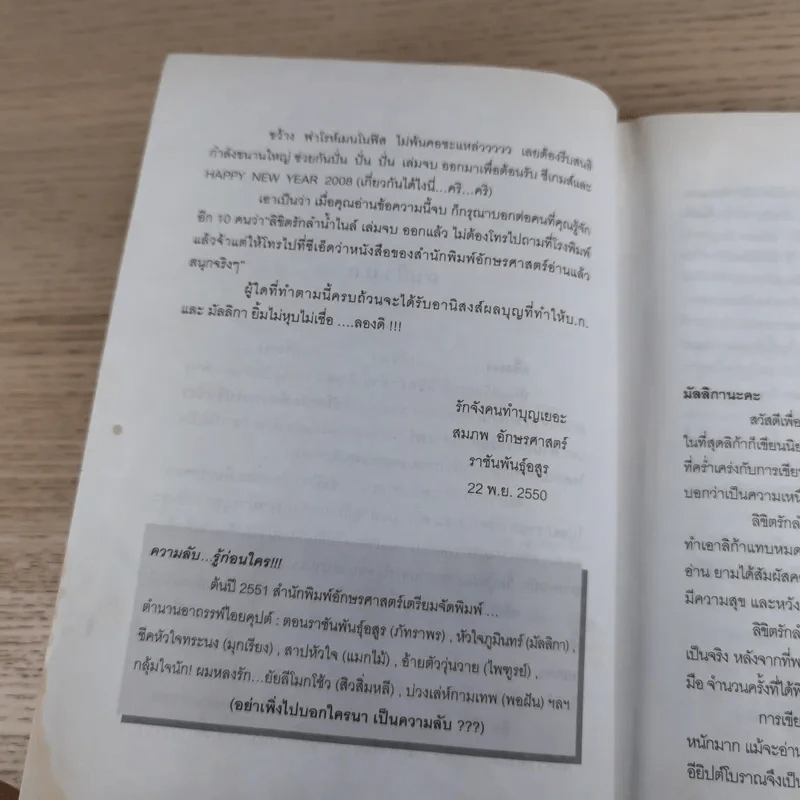 ขว้าง ฟาโรห์เมนโนฟิส ไม่ทันคอซะแหล่ววววว เลยต้องรีบสนธิ
กำลังขนานใหญ่ ช่วยกันปั่น ปั่น ปั่น เล่มจบ ออกมาเพื่อต้อนรับ ซีเกมส์และ
HAPPY NEW YEAR 2008 (เกี่ยวกันได้ไงนี่...คริ...คริ)
เอาเป็นว่า เมื่อคุณอ่านข้อความนี้จบ ก็กรุณาบอกต่อคนที่คุณรู้จัก
อีก 10 คนว่า"ลิขิตรักลำน้ำไนล์ เล่มจบ ออกแล้ว ไม่ต้องโทรไปถามที่โรงพิมพ์
แล้วจ้าแต่ให้โทรไปที่ซีเอ็ดว่าหนังสือของสำนักพิมพ์อักษรศาสตร์อ่านแล้ว
สนุกจริงๆ"
ผู้ใดที่ทำตามนี้ครบถ้วนจะได้รับอานิสงส์ผลบุญที่ทำให้บ.ก.
และ มัลลิกา ยิ้มไม่หุบไม่เชื่อ ....ลองดิ !!!
รักจังคนทำบุญเยอะ
สมภพ อักษรศาสตร์
ราชันพันธุ์อสูร
22 พ.ย. 2550
ความลับ...รู้ก่อนใคร!!!
ต้นปี 2551 สำนักพิมพ์อักษรศาสตร์เตรียมจัดพิมพ์ ...
ตำนานอาถรรพ์ไอยคุปต์ : ตอนราชันพันธุ์อสูร (ภัทราพร) , หัวใจภูมินทร์ (มัลลิกา) ,
ชีคหัวใจทระนง (มุกเรียง) , สาปหัวใจ (แมกไม้) , อ้ายตัววุ่นวาย (ไพฑูรย์) ,
กลุ้มใจนัก! ผมหลงรัก...ยัยลีโมกโช้ว (สิวสิ่มหลี) , บ่วงเล่ห์กามเทพ (พอฝัน) ฯลฯ
(อย่าเพิ่งไปบอกใครนา เป็นความลับ ???)
มัลลิกานะคะ
สวัสดีเพื่อ
ในที่สุดลิก้าก็เขียนนิย
ที่คร่ำเคร่งกับการเขีย
บอกว่าเป็นความเหนื
ลิขิตรักลำ
ทำเอาลิก้าแทบหมด
อ่าน ยามได้สัมผัสค
มีความสุข และหวัง
ลิขิตรักลำ
เป็นจริง หลังจากที่พ
มือ จำนวนครั้งที่ได้พิ
การเขีย
หนักมาก แม้จะอ่าน
อียิปต์โบราณจึงเป็น